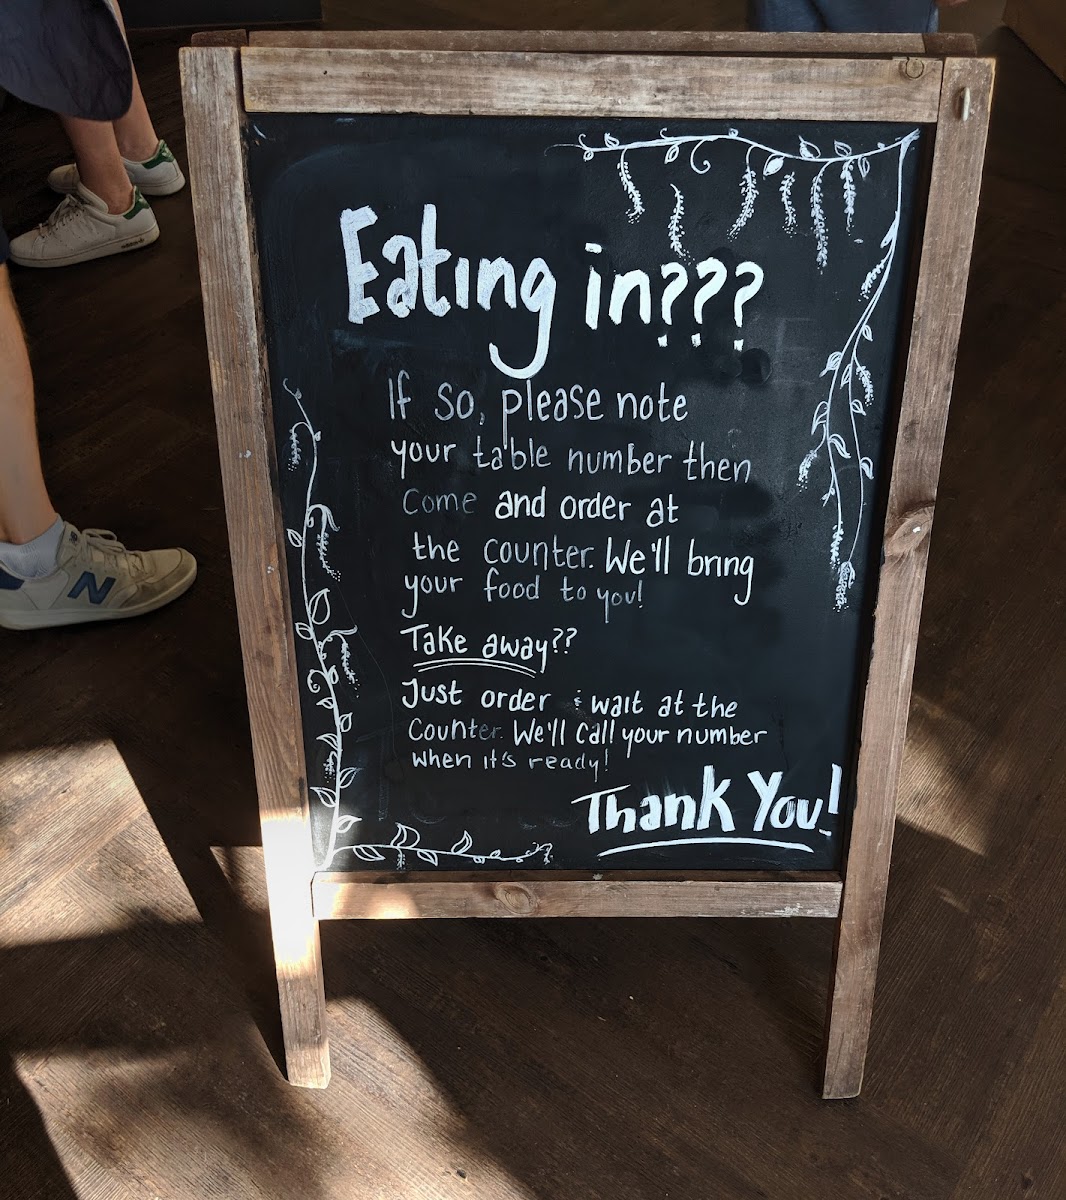 Eating in???
If so, please note
your table number then
come and order at
the counter. We'll bring
your food to you!
Take away??
Just order & wait at the
counter. We'll call your number
when it's ready!
Thank You!
N